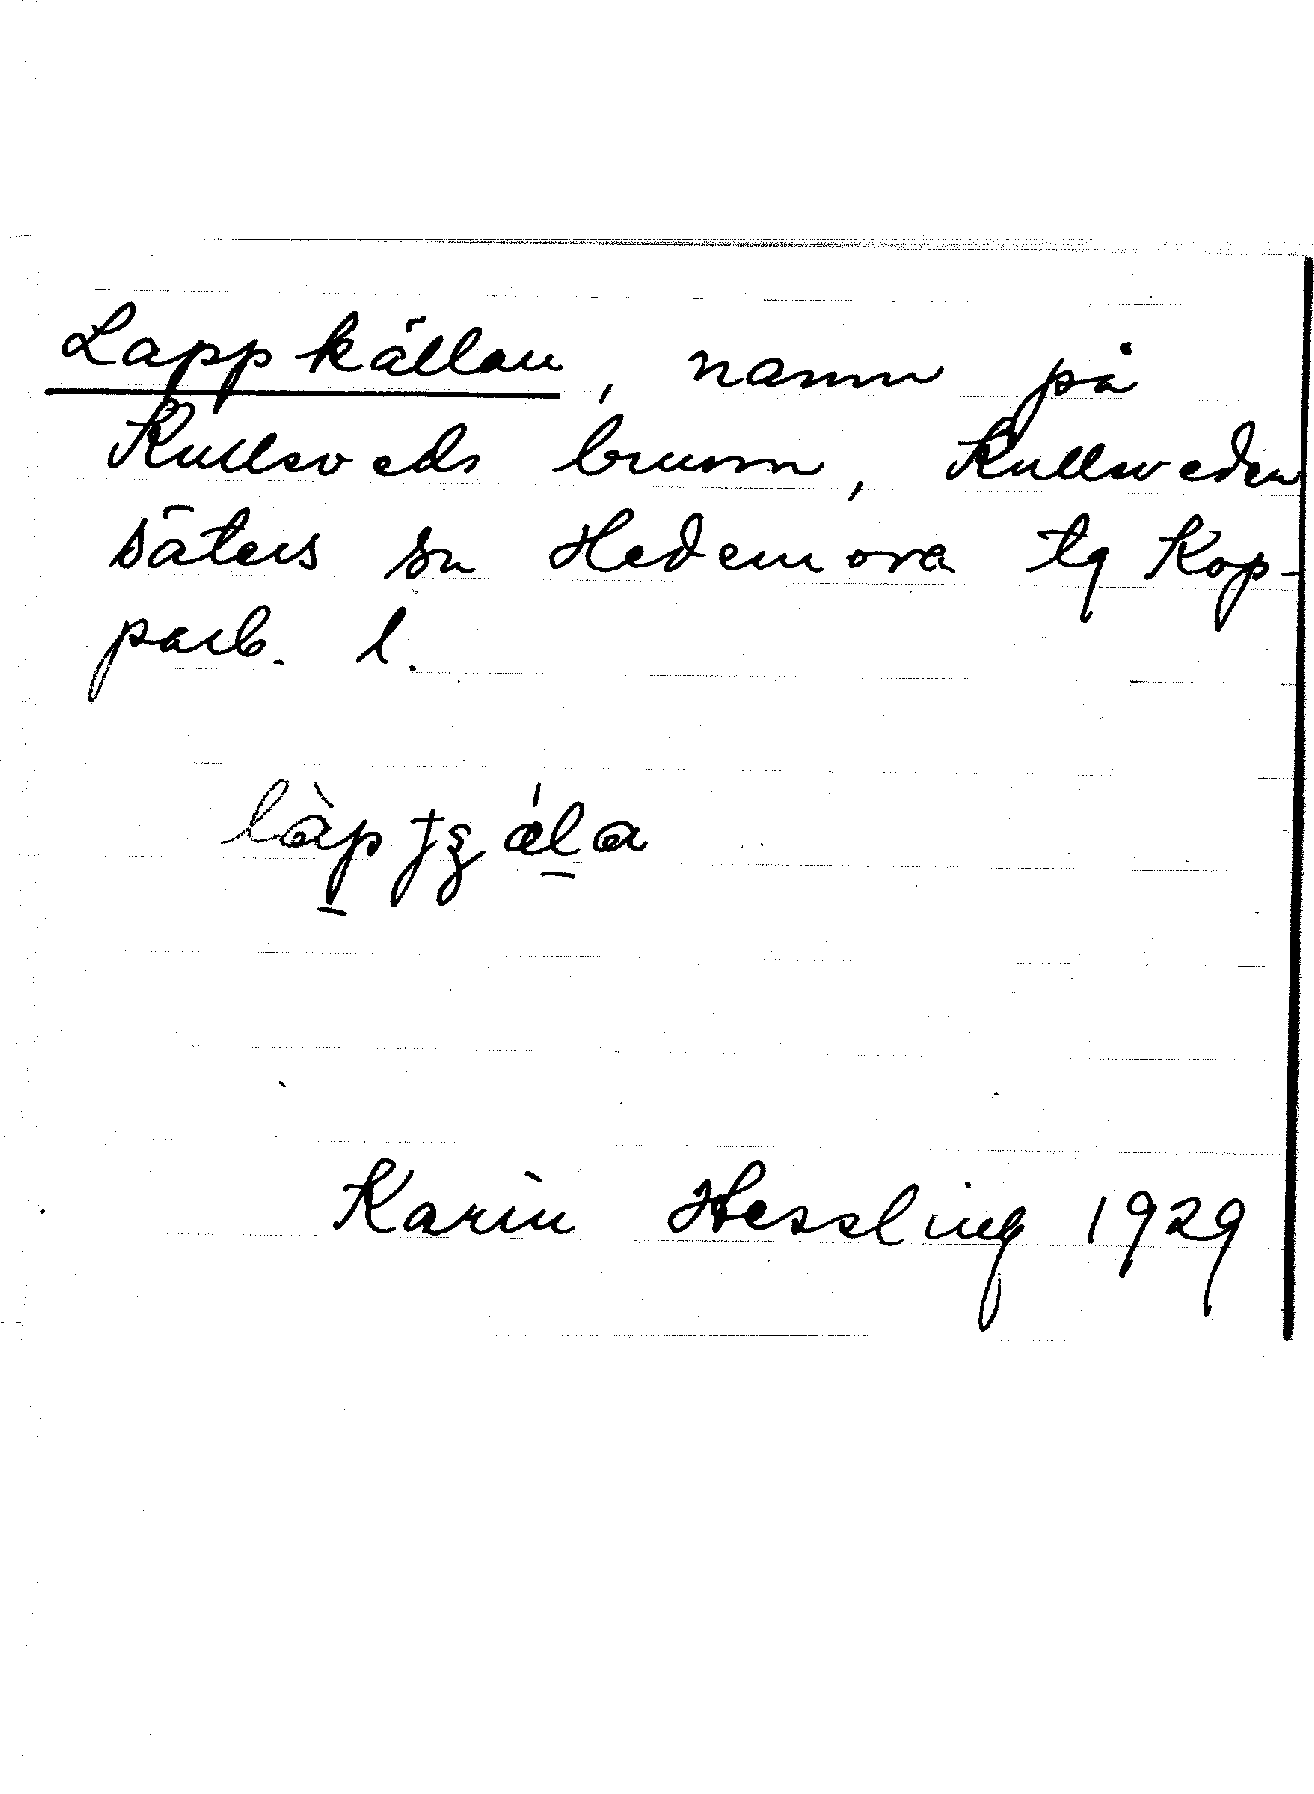 Lappkällan, namn på
Kullsveds brunn, Kullsveden
Säters sn Hedemora tg Kop-
parb. l.
làptʂǽla
Karin Hessling 1929